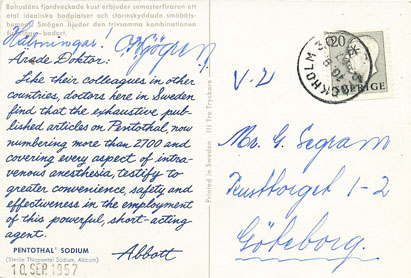 Bohusläns fjordveckade kust erbjuder semesterfiraren ett
otal idealiska badplatser och stormskyddade småbåts-
hamnar. Smögen bjuder den trivsamma kombinationen
Hälsningar!
Ärade Doktor:
Like their colleagues in other
countries, doctors here in Sweden
find that the exhaustive pub-
lished articles on Pentothal, now
numbering more than 2700 and
covering every aspect of intra-
venous anesthesia, testify to
greater convenience, safety and
effectiveness in the employment
of this powerful, short-acting
agent.
Abbott
PENTOTHAL® SODIUM
(Sterile Thiopental Sodium, Abbott)
10 SEP. 1957
Printed in Sweden Ill Tre Tryckare
20
SVERIGE
STOCKHOLM
Mr. G. Segram
Kusttorget 1-2
Göteborg.